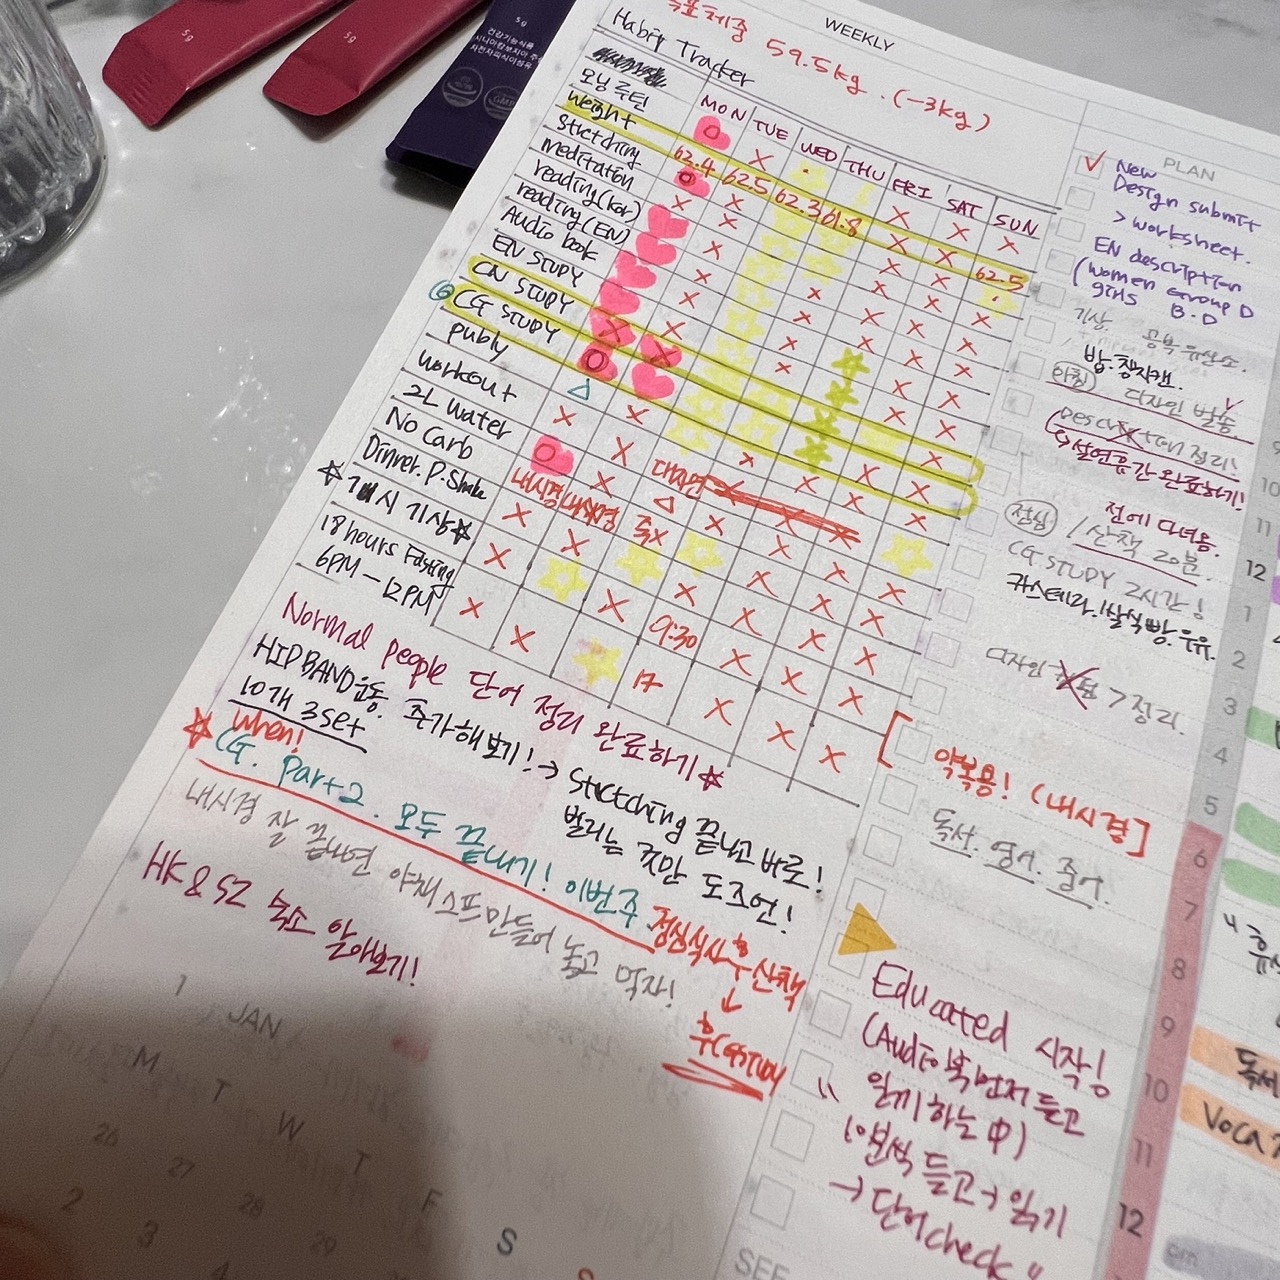 5g
5g
5g
건강기능식품
WEEKLY
목표체중 59.5kg. (-3kg)
Habit Tracker
MON TUE WED THU FRI SAT SUN
모닝루틴
weight 62.4 62.5 62.3 61.8 62.5
Stretching
meditation
reading(kor)
reading(EN)
Audio book
EN STUDY
CN STUDY
⑥ CG STUDY
publy
workout
2L water
No Carb
Dinner. P.Shake 내시경 내시경 대자연
☆7시 기상☆
18 hours Fasting 9:30
6PM-12PM 17
Normal people 단어 정리 완료하기☆
HIP BAND운동. 추가해보기!→ Stretching 끝나고 바로!
10개 3set 벌리는 것만 도즈언!
when!
☆ CG. Part2. 모두 끝내기! 이번주
점심식사 후 산책
↓
후 CG STUDY
내시경 잘 끝나면 야채스프 만들어 놓고 먹자!
HK & SZ 숙소 알아보기!
1 JAN
M T W T F S
26 27 28 29
2 3 4
PLAN
✓ New
Design submit
> worksheet.
EN description
(women Group D
girls B.D
기상. 공복유산소.
아침
디자인 발송.
→설연휴간 완료하기!
전에 다녀옴.
점심 / 산책 20분.
CG STUDY 2시간!
카스테라. 쌀식빵. 우유.
디자인 > 정리
[약복용! (내시경]
독서. 영어. 중어.
Educated 시작!
(Audio북 먼저 듣고
" 읽기 하는 中)
→ 단어 check "
SEE
9
10
11
12
1
2
3
4
5
6
7
8
9
10
11
12
독서
Voca